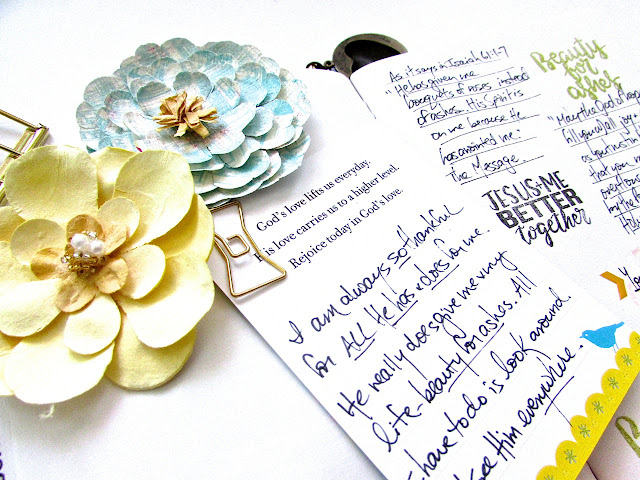 As it says in Isaiah 61:1-7
"He has given me
bouquets of roses instead
of ashes. His Spirit is
on me because He
has anointed me.
The Message.
Beauty
for
ashes
"May the God of hope
fill you w/all joy
as you trust in
that you
by the
JESUS+ME
BETTER
together
God's love lifts us everyday.
His love carries us to a higher level.
Rejoice today in God's love.
I am always so thankful
for ALL He has & does for me.
He really does give me my
life - beauty for ashes. All
I have to do is look around
see Him everywhere.